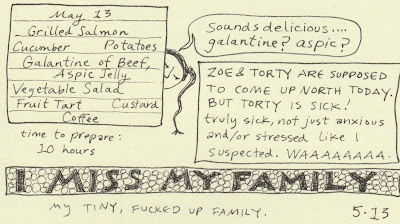 May 13
Grilled Salmon
Cucumber Potatoes
Galantine of Beef,
Aspic Jelly
Vegetable Salad
Fruit Tart Custard
Coffee
time to prepare:
10 hours
Sounds delicious....
galantine? aspic?
ZOE & TORTY ARE SUPPOSED
TO COME UP NORTH TODAY.
BUT TORTY IS SICK!
truly sick, not just anxious
and/or stressed like I
suspected. WAAAAAAAA.
I MISS MY FAMILY
MY TINY, FUCKED UP FAMILY.
5.13